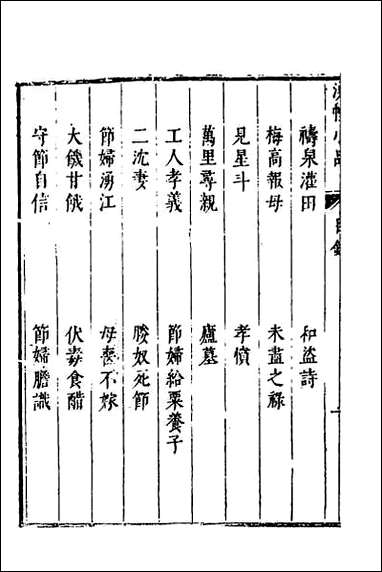 湧幢小品
目錄
禱泉灌田　和盜詩
梅高報母　未盡之祿
見星斗　孝僨
萬里尋親　廬墓
工人孝義　節婦給粟養子
二沈妻　勝奴死節
節婦湧江　母喪不嫁
大饑甘餓　伏毒食醋
守節自信　節婦膽識